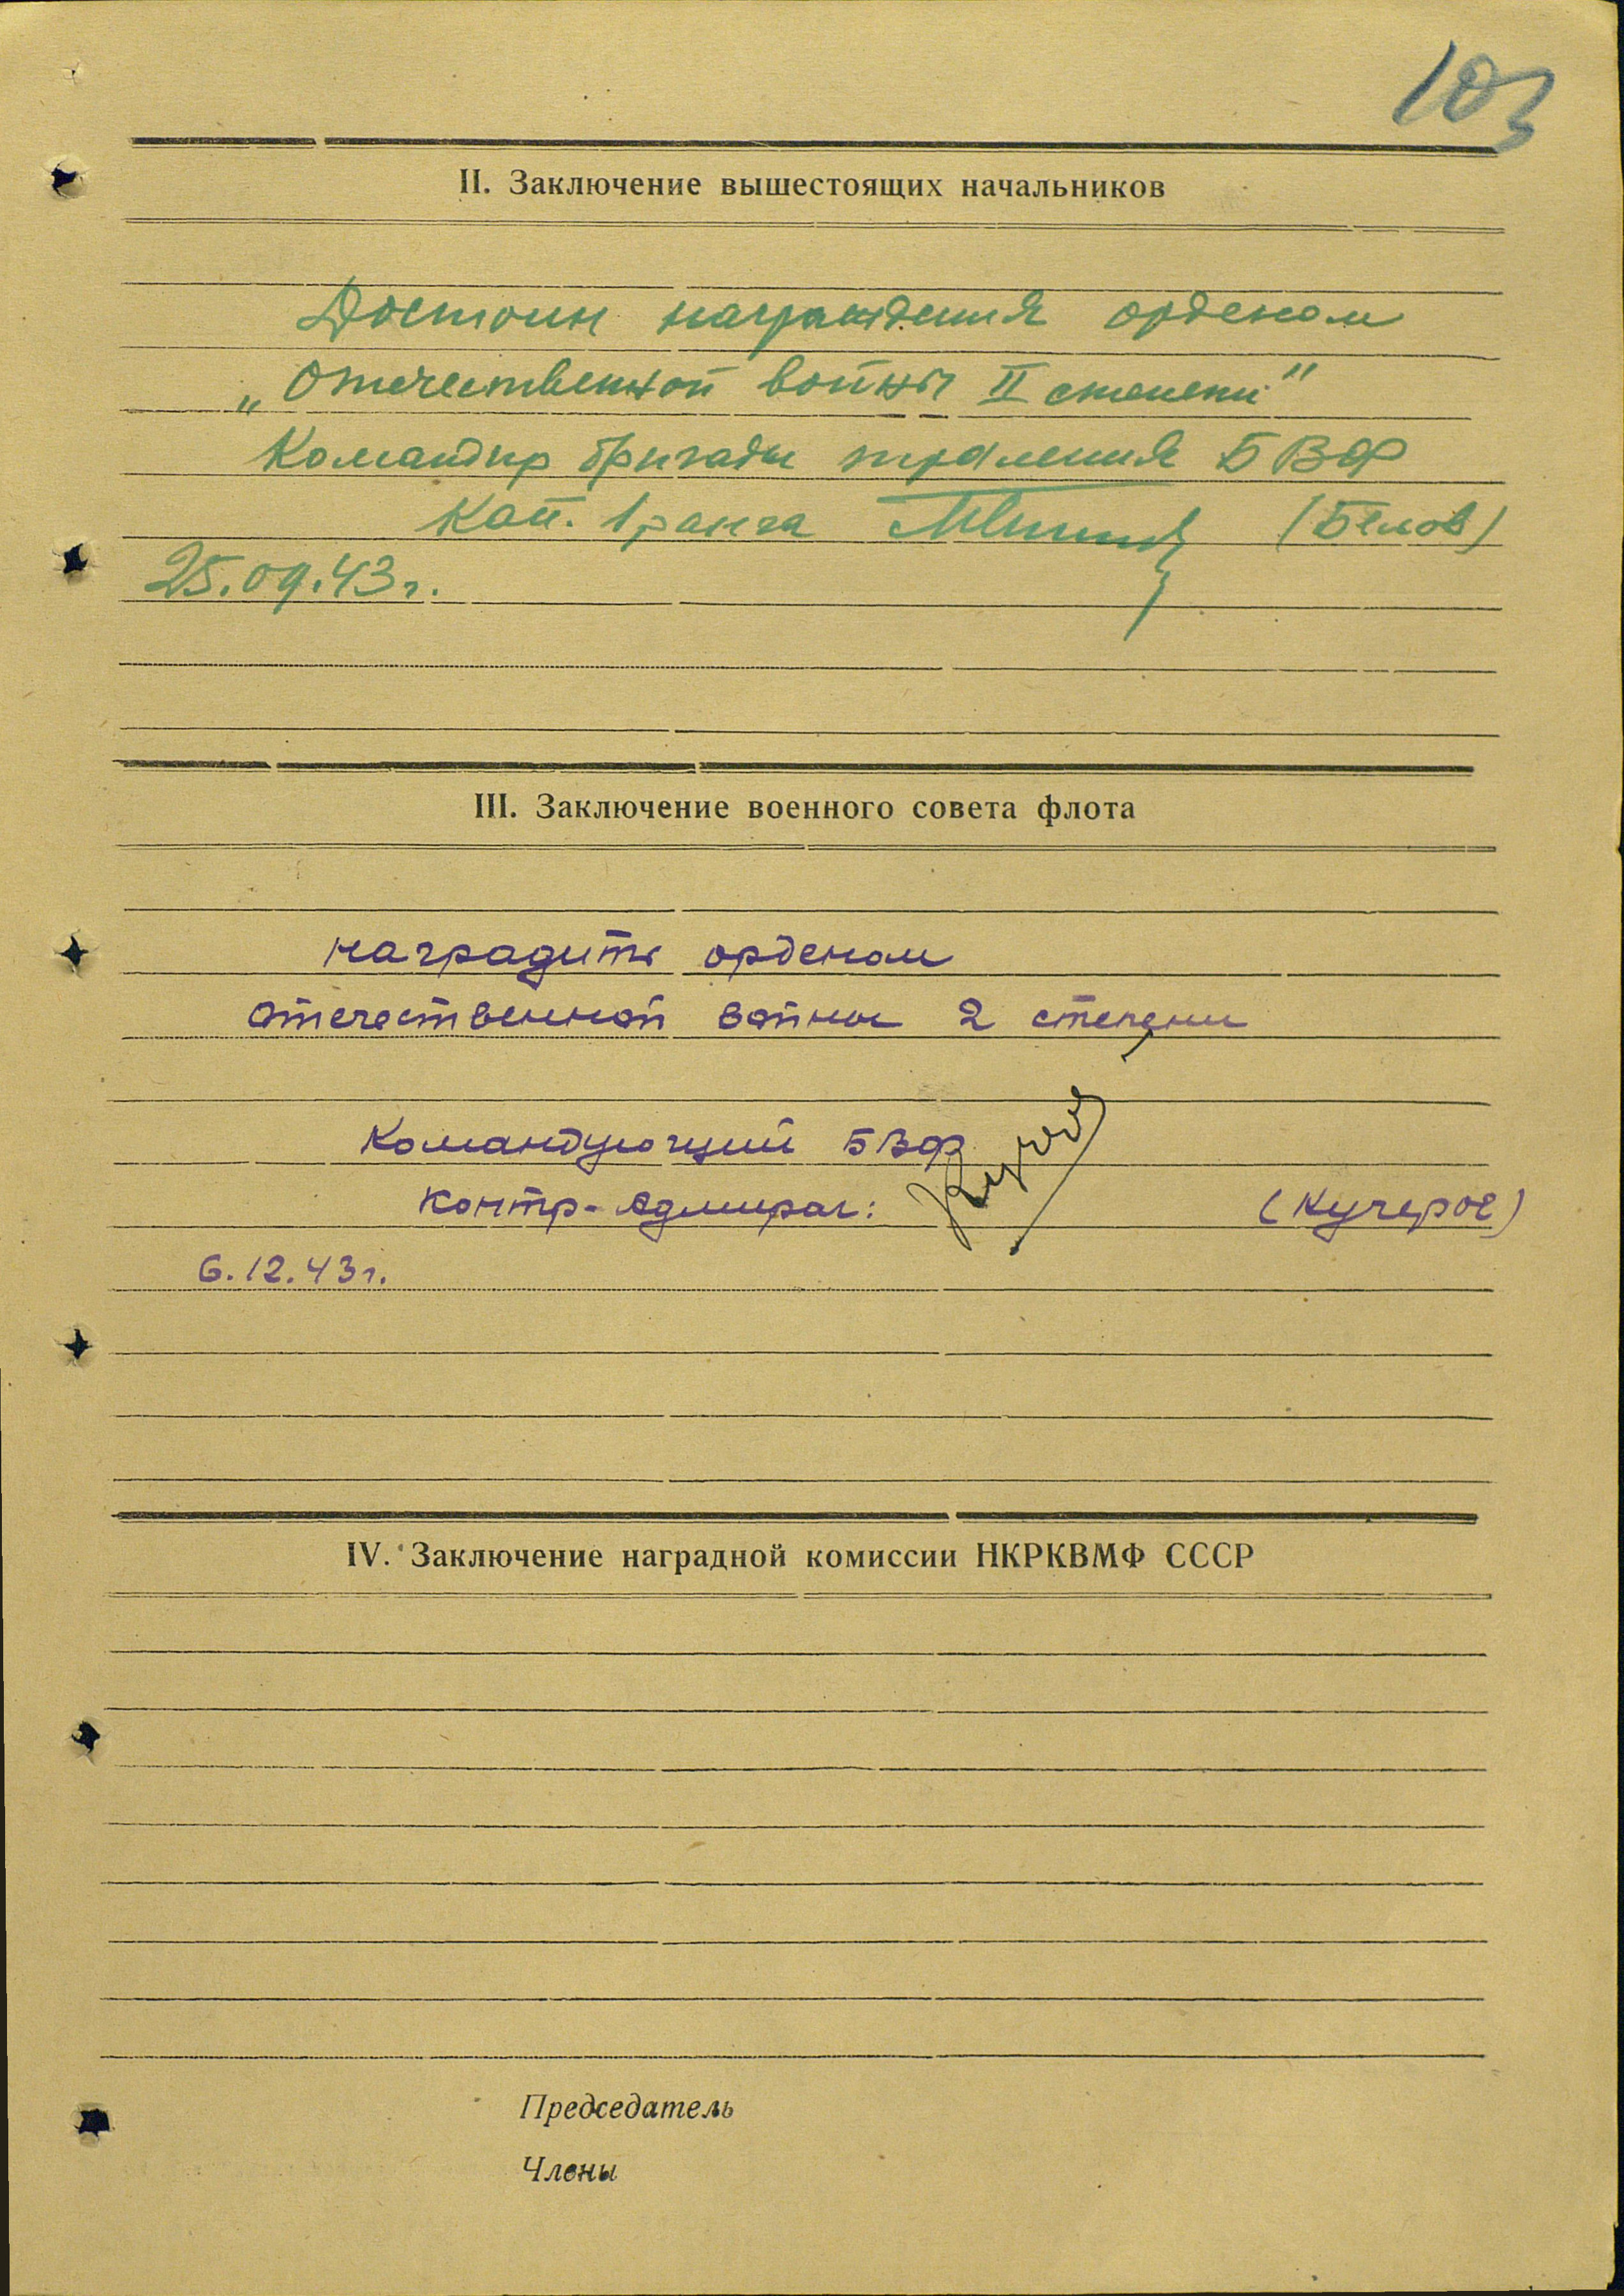 103
II. Заключение вышестоящих начальников
Достоин награждения орденом
„Отечественной войны II степени"
Командир бригады траления БВФ
Кап. 1 ранга (Белов)
25.09.43г.
III. Заключение военного совета флота
наградить орденом
отечественной войны 2 степени
Командующий БВФ
Контр-Адмирал: (Кучеров)
6.12.43г.
IV. Заключение наградной комиссии НКРКВМФ СССР
Председатель
Члены